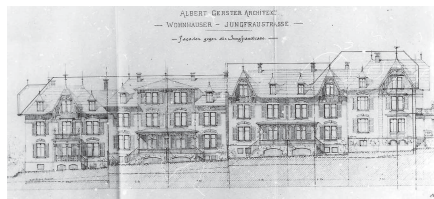 ALBERT GERSTER ARCHITECT.
WOHNHÄUSER - JUNGFRAUSTRASSE
Façaden gegen die Jungfraustrasse